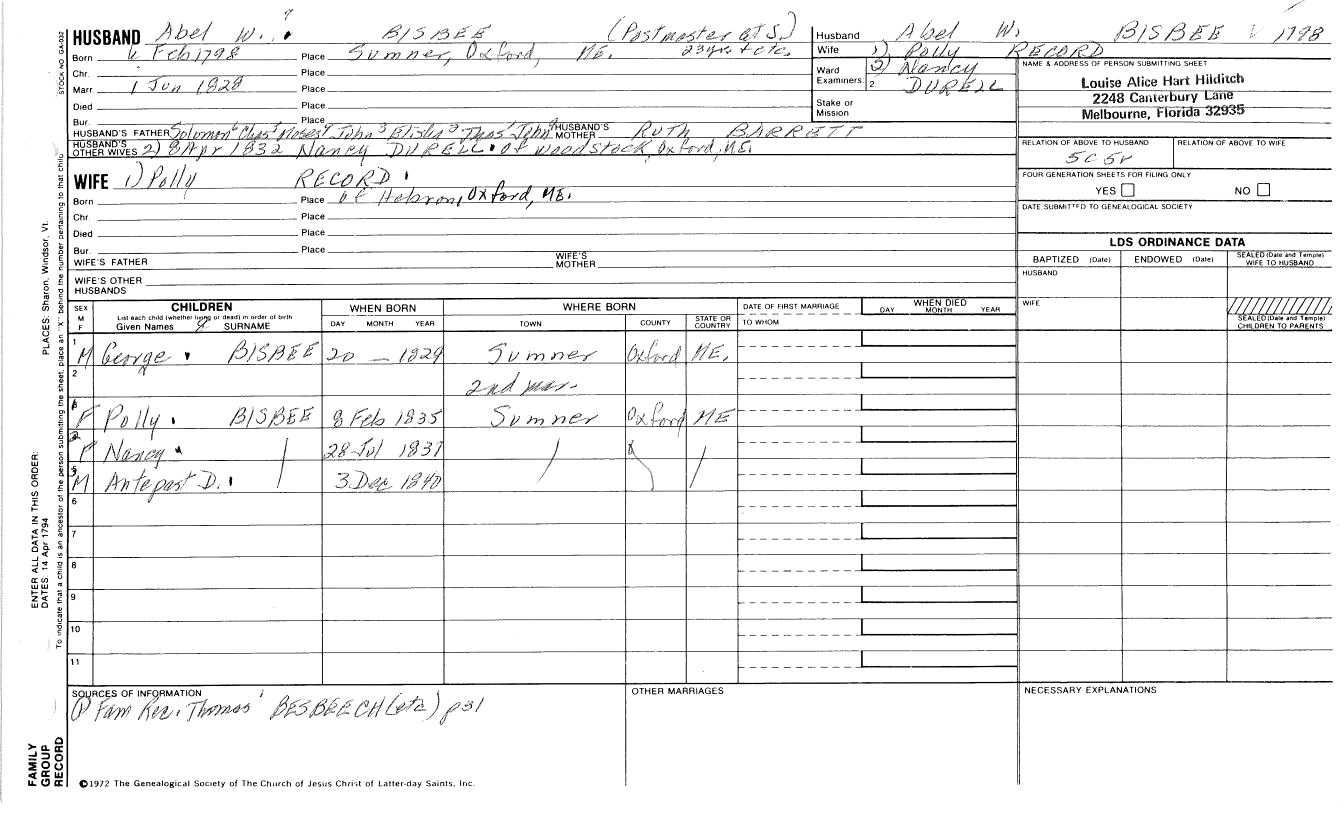 HUSBAND Abel W. BISBEE (Postmaster at S.) 23 yrs + etc.
Born 6 Feb 1798 Place Sumner, Oxford, ME.
Chr. Place
Marr. 1 Jun 1828 Place
Died Place
Bur. Place
HUSBAND'S FATHER Solomon Chas Moses John Elisha Thos John HUSBAND'S MOTHER RUTH BARRETT
HUSBAND'S OTHER WIVES 2) 8 Apr 1832 Nancy DURELL of Woodstock, Oxford, ME.
WIFE 1) Polly RECORD
Born Place of Hebron, Oxford, ME.
Chr. Place
Died Place
Bur. Place
WIFE'S FATHER WIFE'S MOTHER
WIFE'S OTHER HUSBANDS
Husband Abel W. BISBEE 1798
Wife 1) Polly RECORD
2) Nancy DURELL
Ward
Examiners: 2
Stake or Mission
NAME & ADDRESS OF PERSON SUBMITTING SHEET
Louise Alice Hart Hilditch
2248 Canterbury Lane
Melbourne, Florida 32935
RELATION OF ABOVE TO HUSBAND RELATION OF ABOVE TO WIFE
5C 5r
FOUR GENERATION SHEETS FOR FILING ONLY
YES NO
DATE SUBMITTED TO GENEALOGICAL SOCIETY
LDS ORDINANCE DATA
BAPTIZED (Date) ENDOWED (Date) SEALED (Date and Temple) WIFE TO HUSBAND
HUSBAND
WIFE
SEALED (Date and Temple) CHILDREN TO PARENTS
SEX M F CHILDREN List each child (whether living or dead) in order of birth Given Names SURNAME
WHEN BORN DAY MONTH YEAR
WHERE BORN TOWN COUNTY STATE OR COUNTRY
DATE OF FIRST MARRIAGE TO WHOM
WHEN DIED DAY MONTH YEAR
1 M George BISBEE 20 — 1829 Sumner Oxford ME.
2 2nd mar.
1 F Polly BISBEE 8 Feb 1835 Sumner Oxford ME
2 F Nancy 28 Jul 1837
3 M Antepast D. 3 Dec 1840
6
7
8
9
10
11
SOURCES OF INFORMATION
① Fam Rec. Thomas BESBEECH (etc) p31
OTHER MARRIAGES
NECESSARY EXPLANATIONS
©1972 The Genealogical Society of The Church of Jesus Christ of Latter-day Saints, Inc.
STOCK NO GA-032
PLACES: Sharon, Windsor, Vt.
ENTER ALL DATA IN THIS ORDER:
DATES: 14 Apr 1794
To indicate that a child is an ancestor of the person submitting the sheet, place an "X" behind the number pertaining to that child.
FAMILY GROUP RECORD